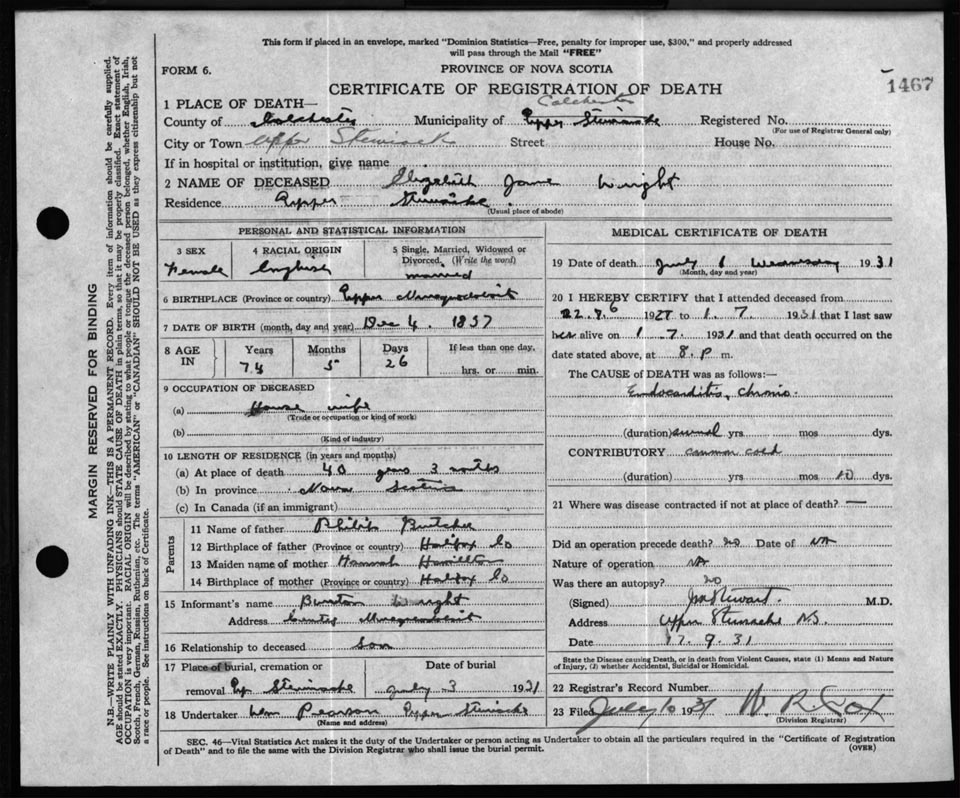 This form if placed in an envelope, marked "Dominion Statistics—Free, penalty for improper use, $300," and properly addressed
will pass through the Mail "FREE"
FORM 6.
PROVINCE OF NOVA SCOTIA
CERTIFICATE OF REGISTRATION OF DEATH
1467
1 PLACE OF DEATH—
Colchester
County of Colchester Municipality of Upper Stewiacke Registered No.
(For use of Registrar General only)
City or Town Upper Stewiack Street House No.
If in hospital or institution, give name
2 NAME OF DECEASED Elizabeth Jane Wright
Residence Upper Stewiacke
(Usual place of abode)
PERSONAL AND STATISTICAL INFORMATION
3 SEX
Female
4 RACIAL ORIGIN
English
5 Single, Married, Widowed or
Divorced. (Write the word)
married
6 BIRTHPLACE (Province or country) Upper Musquodoboit
7 DATE OF BIRTH (month, day and year) Dec 4. 1857
8 AGE IN
Years Months Days If less than one day,
74 5 26 hrs. or min.
9 OCCUPATION OF DECEASED
(a) House wife
(Trade or occupation or kind of work)
(b)
(Kind of industry)
10 LENGTH OF RESIDENCE (in years and months)
(a) At place of death 40 years 3 months
(b) In province Nova Scotia
(c) In Canada (if an immigrant)
Parents
11 Name of father Philip Butcher
12 Birthplace of father (Province or country) Halifax Co
13 Maiden name of mother Hannah Hamilton
14 Birthplace of mother (Province or country) Halifax Co
15 Informant's name Burton Wright
Address Centre Musquodoboit
16 Relationship to deceased Son
17 Place of burial, cremation or Date of burial
removal Up. Stewiacke July 3 1931
18 Undertaker Wm Pearson Upper Stewiacke
(Name and address)
MEDICAL CERTIFICATE OF DEATH
19 Date of death July 1 1931
(Month, day and year)
20 I HEREBY CERTIFY that I attended deceased from
1927 to 1. 7 1931 that I last saw
her alive on 1. 7. 1931 and that death occurred on the
date stated above, at 8. P m.
The CAUSE of DEATH was as follows:—
Endocarditis, chronic.
(duration) several yrs mos dys.
CONTRIBUTORY common cold
(duration) yrs mos 10 dys.
21 Where was disease contracted if not at place of death? —
Did an operation precede death? no Date of NA
Nature of operation NA
Was there an autopsy? no
(Signed) Stewart. M.D.
Address Upper Stewiacke N.S.
Date 9. 31
State the Disease causing Death, or in death from Violent Causes, state (1) Means and Nature
of Injury, (2) whether Accidental, Suicidal or Homicidal.
22 Registrar's Record Number
23 Filed July 10 1931 W. R. Cox
(Division Registrar)
SEC. 46—Vital Statistics Act makes it the duty of the Undertaker or person acting as Undertaker to obtain all the particulars required in the "Certificate of Registration
of Death" and to file the same with the Division Registrar who shall issue the burial permit.
(OVER)
MARGIN RESERVED FOR BINDING
N.B.—WRITE PLAINLY WITH UNFADING INK—THIS IS A PERMANENT RECORD. Every item of information should be carefully supplied.
AGE should be stated EXACTLY. PHYSICIANS should STATE CAUSE OF DEATH in plain terms, so that it may be properly classified. Exact statement of
OCCUPATION is very important. RACIAL ORIGIN will be described by stating to what people or tongue the deceased person belonged, whether English, Irish,
Scotch, French, German, Russian, Ruthenian, etc. The terms "AMERICAN" or "CANADIAN" SHOULD NOT BE USED as they express citizenship but not
a race or people. See instructions on back of Certificate.